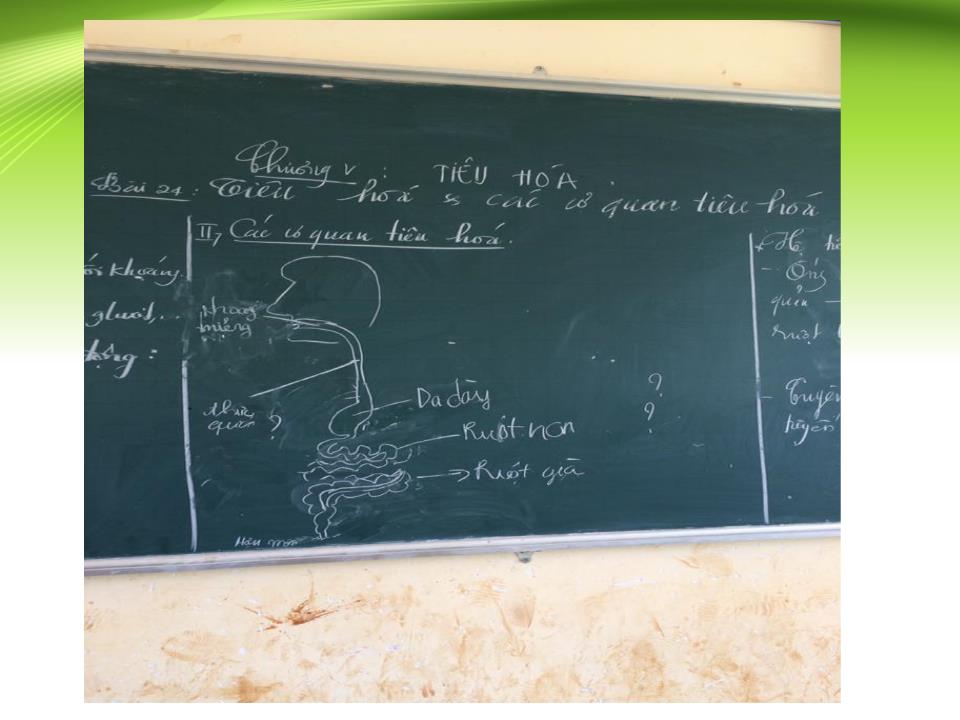 Chương V : TIÊU HÓA .
Bài 24 : Tiêu hoá và các cơ quan tiêu hoá
ối khoáng.
gluxit, ...
động :
II, Các cơ quan tiêu hoá.
khoang
miệng
thực
quản ?
Da dày
Ruột non
Ruột già
Hậu môn
?
?
Hệ
- Ống
quản
ruột
- Tuyến
tuyến